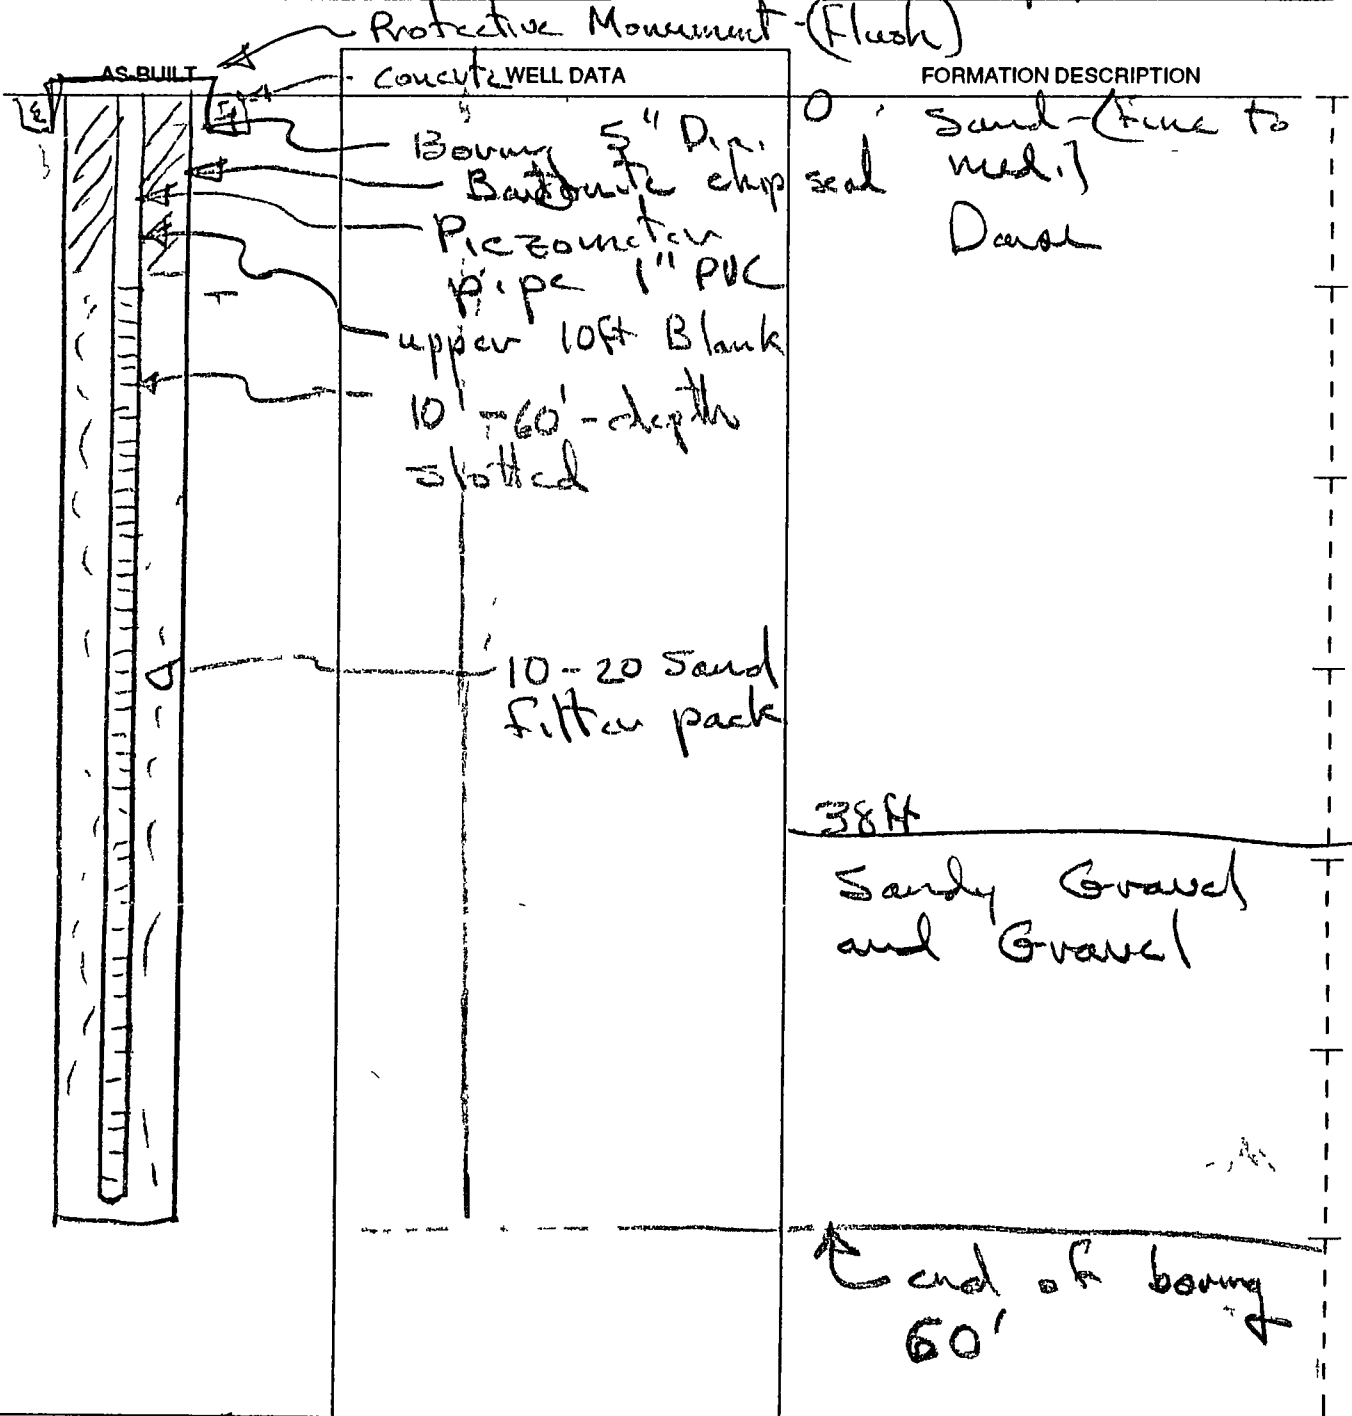 Protective Monument - (Flush)
AS-BUILT
concrete WELL DATA
FORMATION DESCRIPTION
Boring 5" Dia.
Bentonite chip seal
Piezometer
pipe 1" PVC
upper 10ft Blank
10'-60'-depth
slotted
10-20 Sand
filter pack
0
Sand-(Fine to
med.)
38ft
Sandy Gravel
and Gravel
end of boring
60'